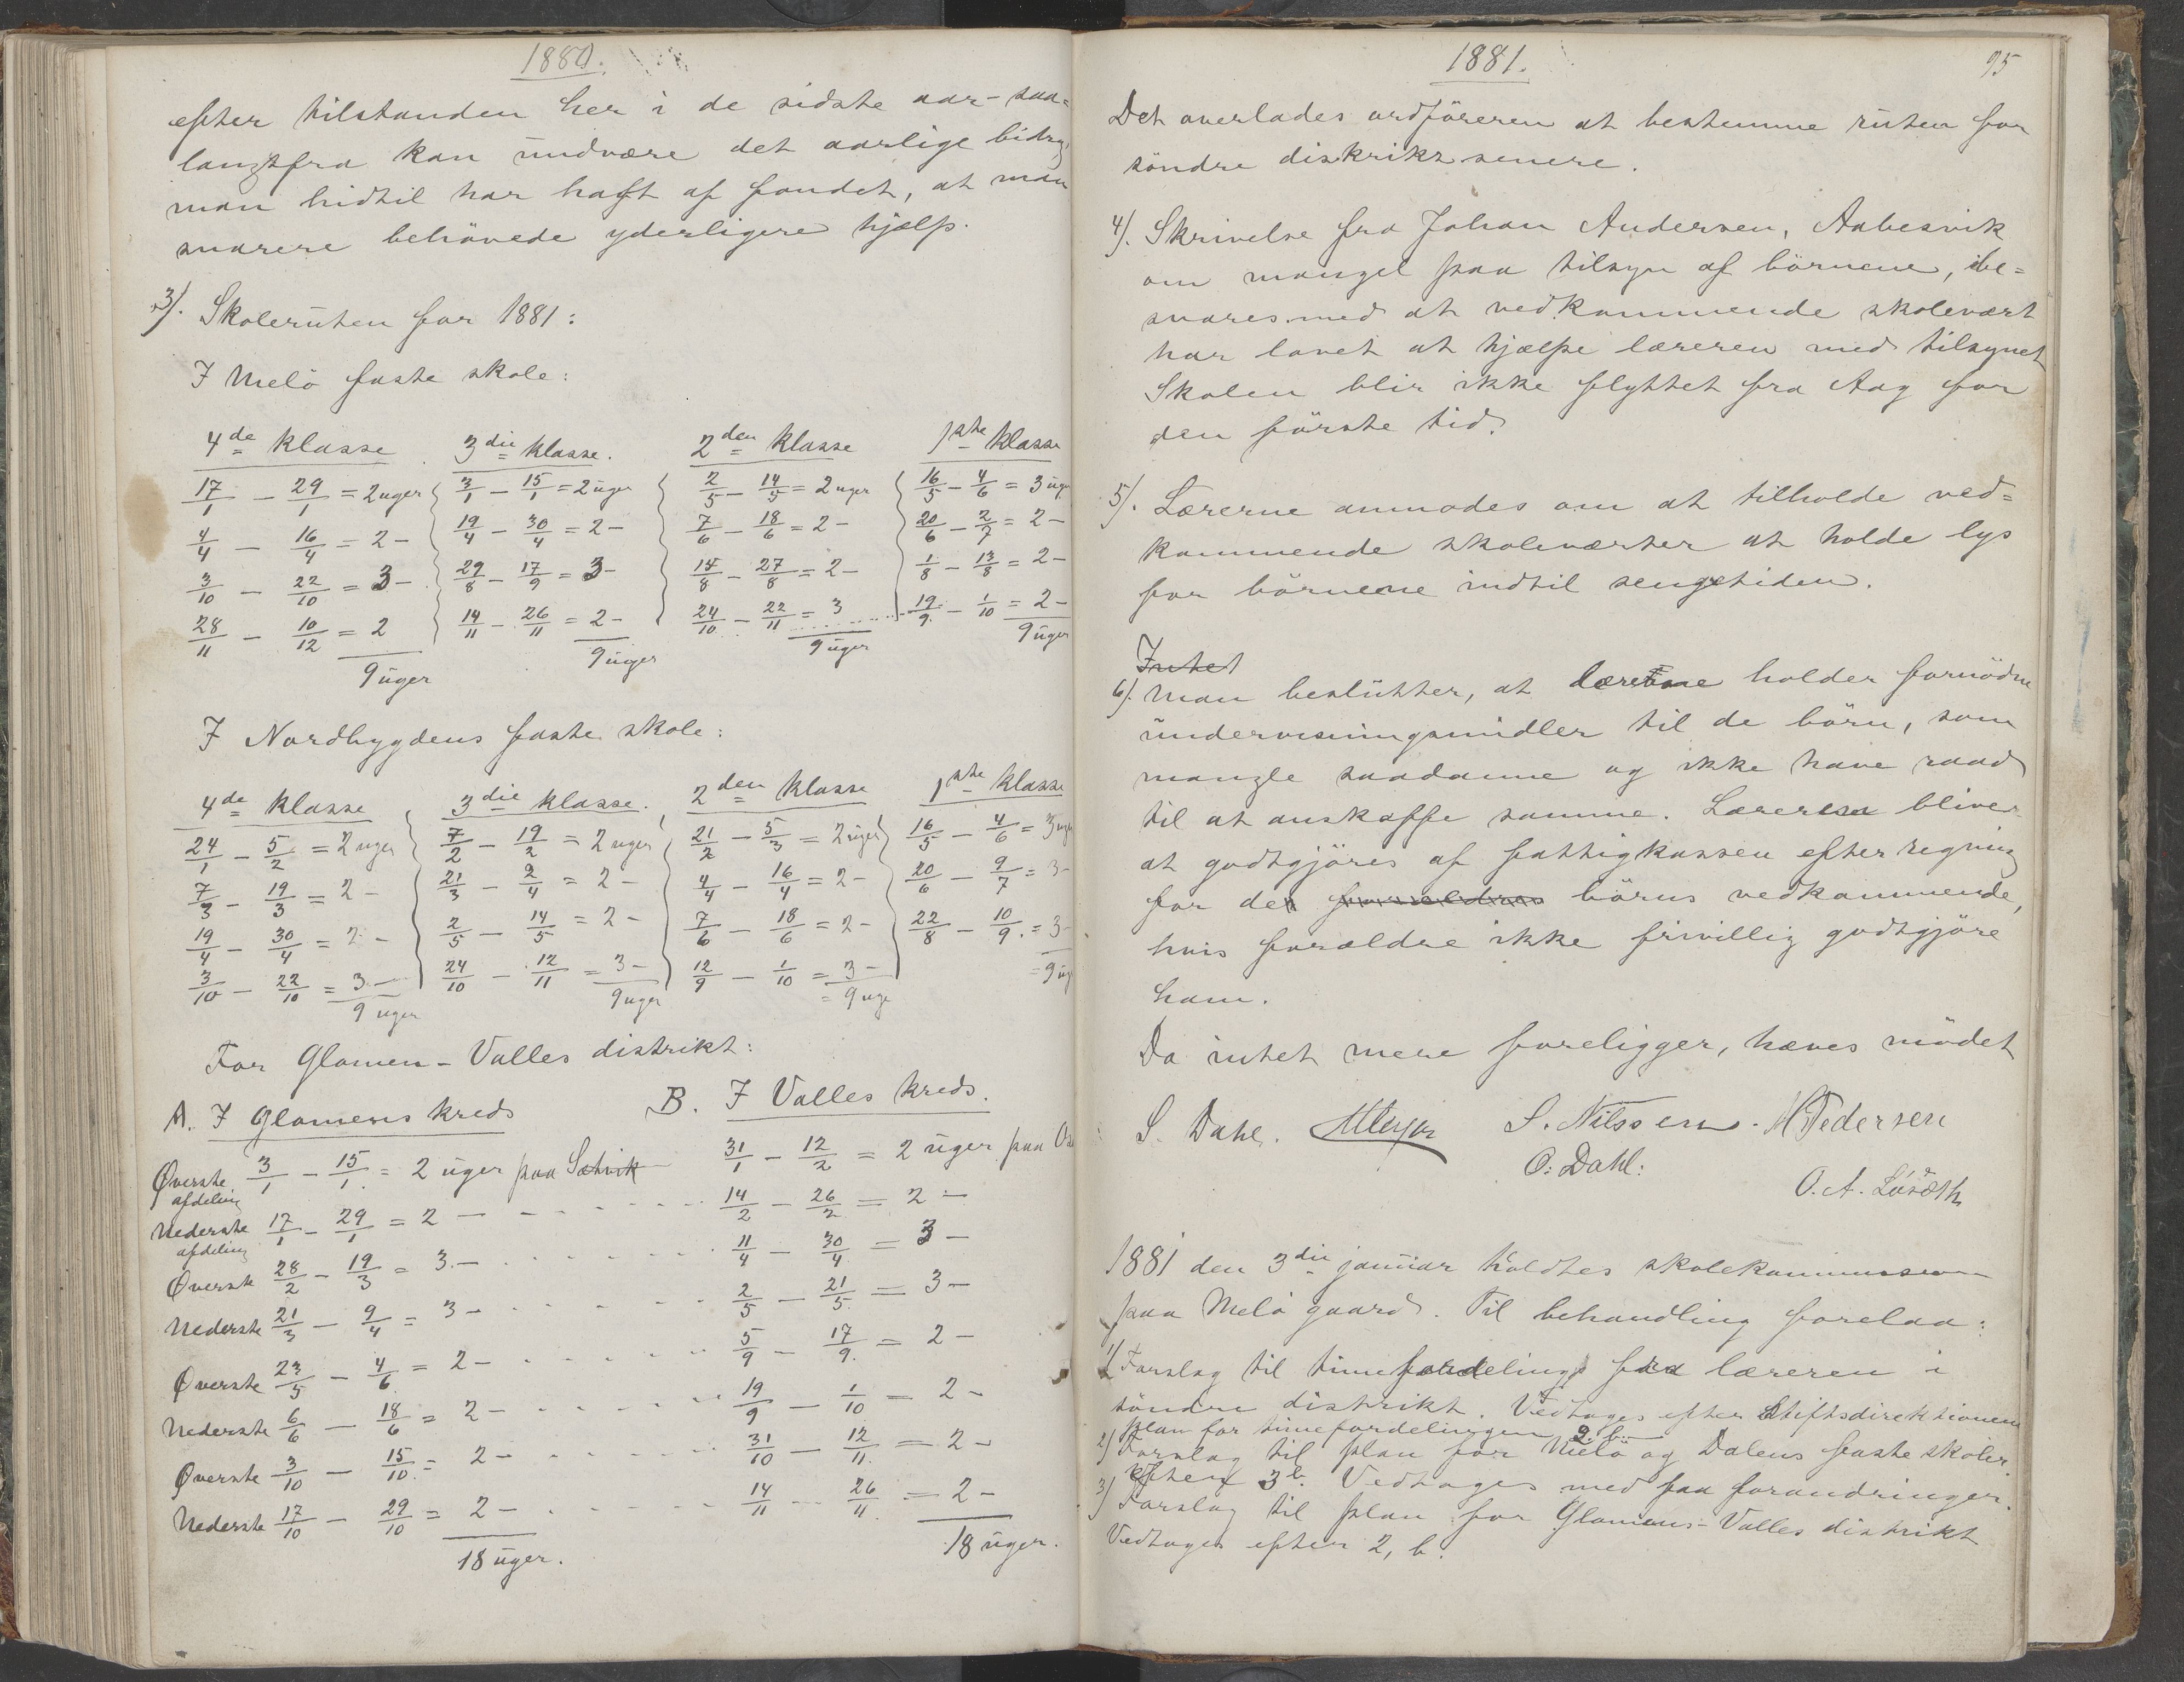 1880.
efter tilstanden her i de sidste aar - saa=
langtfra kan undvære det aarlige bidrag
man hidtil har haft af fondet, at man
snarere behövede yderligere hjælp.
3). Skoleruten for 1881:
I Melö faste skole:
4de klasse 3die klasse. 2den klasse 1ste klasse
17/1 - 29/1 = 2 uger 3/1 - 15/1 = 2 uger 2/5 - 14/5 = 2 uger 16/5 - 4/6 = 3 uger
4/4 - 16/4 = 2 - 19/4 - 30/4 = 2 - 7/6 - 18/6 = 2 - 20/6 - 2/7 = 2 -
3/10 - 22/10 = 3 - 29/8 - 17/9 = 3 - 15/8 - 27/8 = 2 - 1/8 - 13/8 = 2 -
28/11 - 10/12 = 2 14/11 - 26/11 = 2 - 24/10 - 22/11 = 3 19/9 - 1/10 = 2 -
9 uger 9 uger 9 uger 9 uger
I Nordbygdens faste skole:
4de klasse 3die klasse. 2den klasse 1ste klasse
24/1 - 5/2 = 2 uger 7/2 - 19/2 = 2 uger 21/2 - 5/3 = 2 uger 16/5 - 4/6 = 3 uger
7/3 - 19/3 = 2 - 21/3 - 2/4 = 2 - 4/4 - 16/4 = 2 - 20/6 - 9/7 = 3 -
19/4 - 30/4 = 2 - 2/5 - 14/5 = 2 - 7/6 - 18/6 = 2 - 22/8 - 10/9 = 3 -
3/10 - 22/10 = 3 - 24/10 - 12/11 = 3 - 12/9 - 1/10 = 3 - = 9 ug
9 uger 9 uger = 9 uge
For Glomen - Valles distrikt:
A. I Glomens kreds B. I Valles kreds.
Øverste afdeling 3/1 - 15/1 = 2 uger paa Sætvik 31/1 - 12/2 = 2 uger paa
Nederste afdeling 17/1 - 29/1 = 2 - 14/2 - 26/2 = 2 -
Øverste 28/2 - 19/3 = 3 - 11/4 - 30/4 = 3 -
Nederste 21/3 - 9/4 = 3 - 2/5 - 21/5 = 3 -
Øverste 23/5 - 4/6 = 2 - 5/9 - 17/9 = 2 -
Nederste 6/6 - 18/6 = 2 - 19/9 - 1/10 = 2 -
Øverste 3/10 - 15/10 = 2 - 31/10 - 12/11 = 2 -
Nederste 17/10 - 29/10 = 2 - 14/11 - 26/11 = 2 -
18 uger. 18 uger.
1881.
95
Det overlades ordföreren at bestemme ruten for
söndre distrikt senere.
4). Skrivelse fra Johan Andersen, Aabesvik
om mangel paa tilsyn af börnene, be=
svares med at vedkommende skolevært
har lovet at hjælpe læreren med tilsynet
Skolen blir ikke flyttet fra Aag for
den förste tid.
5). Lærerne anmodes om at tilholde ved=
kommende skoleværter at holde lys
for börnene indtil sengetiden.
Intet
6). Man beslutter, at lærerne holder fornödne
undervisningsmidler til de börn, som
mangle saadanne og ikke have raad
til at anskaffe samme. Læreren bliver
at godtgjöres af fattigkassen efter regning
for de forældres börns vedkommende,
hvis forældre ikke frivillig godtgjöre
ham.
Da intet mere foreligger, hæves mödet
S. Dahl. S. Nilssen. M Pedersen
O. Dahl:
1881 den 3die januar holdtes skolekommission
paa Melö gaard. Til behandling forelaa:
1) Forslag til timefordeling fra læreren i
söndre distrikt. Vedtages efter Stiftsdirektionens
plan for timefordelingen 2. b.
2) Forslag til plan for Melö og Dalens faste skoler.
efter 3 b. Vedtages med faa forandringer.
3) Forslag til plan for Glomens-Valles distrikt
Vedtages efter 2, b.